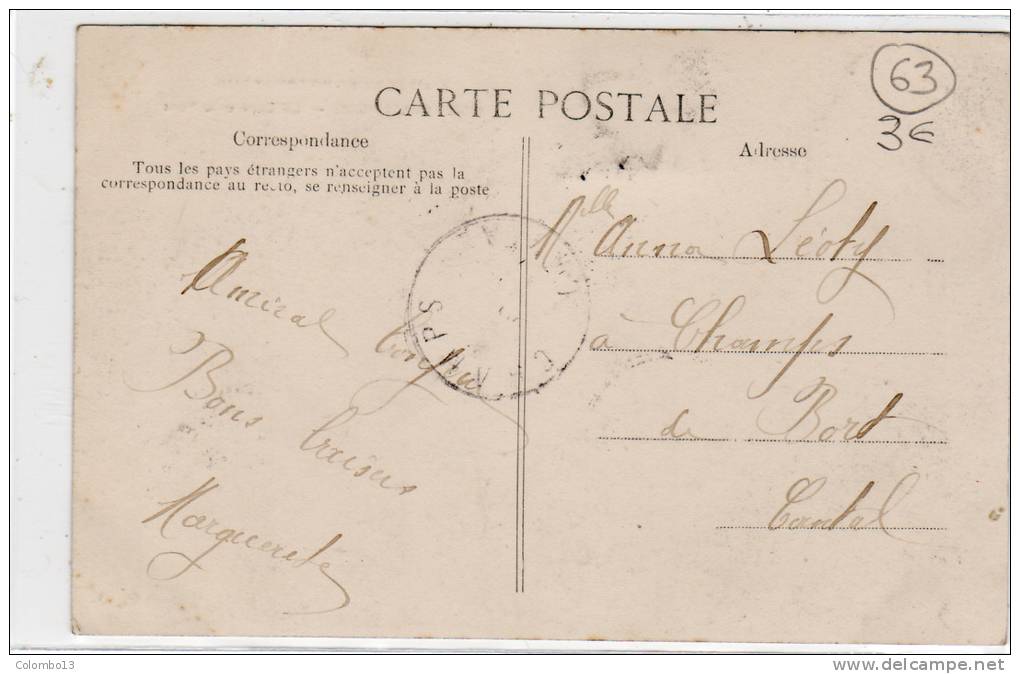 63
3€
CARTE POSTALE
Correspondance
Tous les pays étrangers n'acceptent pas la
correspondance au recto, se renseigner à la poste
Bons baisers
Marguerite
Adresse
Mlle Anna Léoty
à Champs
de Bort
Cantal
Colombo13
www.delcampe.net